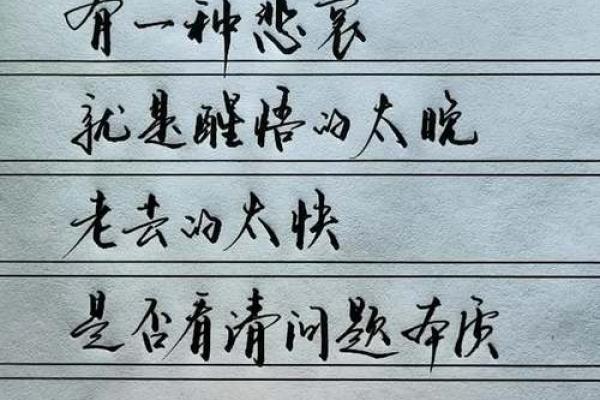 有一种悲哀
就是醒悟的太晚
老去的太快
是否看清问题本质